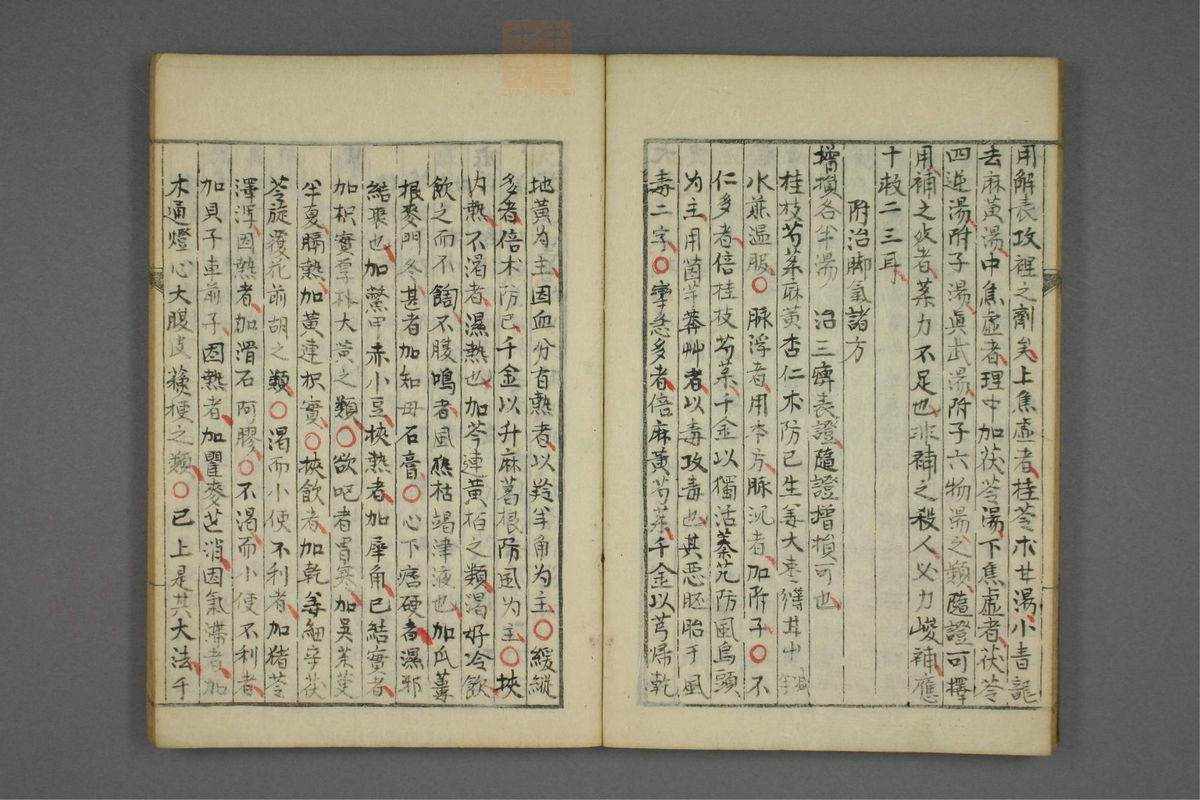 用解表攻裡之劑矣上焦虛者桂苓朮甘湯小青龍
去麻黃湯中焦虛者理中加茯苓湯下焦虛者茯苓
四逆湯附子湯眞武湯附子六物湯之類隨證可擇
用補之攻者藥力不足也非補之殺人必力峻補應
十救二三耳
附治脚氣諸方
增損各半湯 治三痺表證隨證增損可也
桂枝芍藥麻黃杏仁朮防已生姜大枣 甘艸減半
水煎溫服〇脉浮者用本方脉沉者加附子〇不
仁多者倍桂枝芍藥千金以獨活蓁艽防風烏頭
为主用茵芋莽艸者以毒攻毒也其惡胚胎于風
毒二字〇攣急多者倍麻黃芍藥千金以芎歸乾
地黃为主因血分有熱者以羚羊角为主〇緩縱
多者倍朮防已千金以升麻葛根防風为主〇挾
內熱不渴者濕熱也加芩連黃栢之類渴好冷飲
飲之而不飽不腹鳴者風熱枯竭津液也加瓜蔞
根麥門冬甚者加知母石膏〇心下痞硬者濕邪
結聚也加鱉甲赤小豆挾熱者加犀角已結實者
加枳實厚朴大黃之類〇欲吧者胃寒加吳茱萸
半夏膈熱加黃連枳實〇挾飲者加乾姜細辛茯
苓旋覆花前胡之類〇渴而小便不利者加猪苓
澤泻因熱者加滑石阿膠〇不渴而小便不利者
加貝子車前子因熱者加瞿麥芒消因氣滯者加
木通燈心大腹皮蘓梗之類〇已上是其大法千